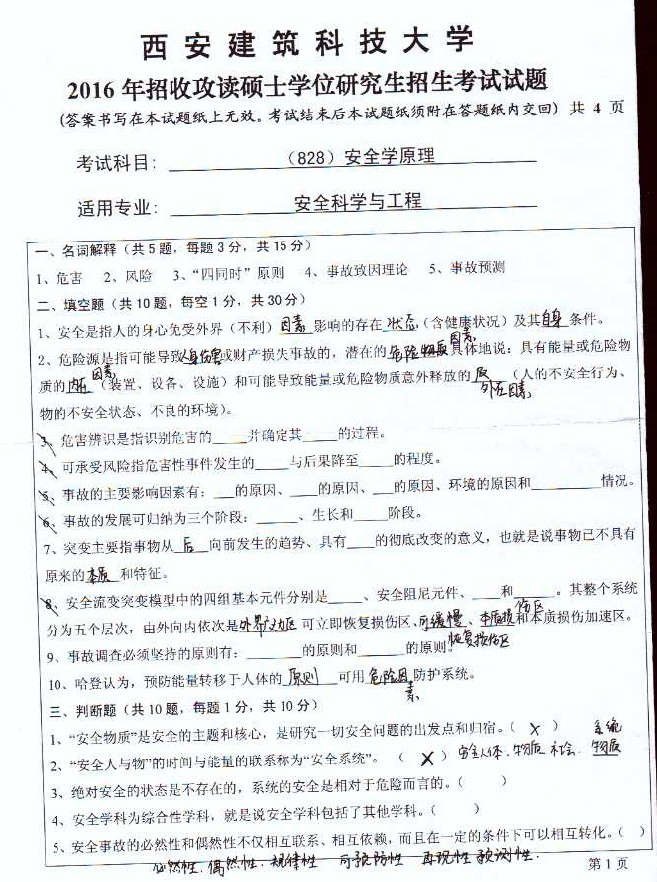 西安建筑科技大学
2016年招收攻读硕士学位研究生招生考试试题
(答案书写在本试题纸上无效。考试结束后本试题纸须附在答题纸内交回) 共 4 页
考试科目: (828)安全学原理
适用专业: 安全科学与工程
一、名词解释(共5题,每题3分,共15分)
1、危害 2、风险 3、“四同时”原则 4、事故致因理论 5、事故预测
二、填空题(共10题,每空1分,共30分)
1、安全是指人的身心免受外界(不利)因素影响的存在状态(含健康状况)及其自身条件。
2、危险源是指可能导致人身伤害或财产损失事故的,潜在的危险物质因素具体地说:具有能量或危险物
质的内在因素(装置、设备、设施)和可能导致能量或危险物质意外释放的外在因素(人的不安全行为、
物的不安全状态、不良的环境)。
3、危害辨识是指识别危害的____并确定其____的过程。
4、可承受风险指危害性事件发生的____与后果降至____的程度。
5、事故的主要影响因素有:___的原因、____的原因、___的原因、环境的原因和________情况。
6、事故的发展可归纳为三个阶段:_____、生长和____阶段。
7、突变主要指事物从 后 向前发生的趋势、具有____的彻底改变的意义,也就是说事物已不具有
原来的本质 和特征。
8、安全流变突变模型中的四组基本元件分别是_____、安全阻尼元件、____和_____。其整个系统
分为五个层次,由外向内依次是外界 区 可立即恢复损伤区、可缓慢恢复损伤区、本质损伤区和本质损伤加速区。
9、事故调查必须坚持的原则有:________的原则和_______的原则。
10、哈登认为,预防能量转移于人体的 原则 可用 危险因素 防护系统。
三、判断题(共10题,每题1分,共10分)
1、“安全物质”是安全的主题和核心,是研究一切安全问题的出发点和归宿。( X ) 系统
2、“安全人与物”的时间与能量的联系称为“安全系统”。 ( X ) 安全人体. 物质 社会. 物质
3、绝对安全的状态是不存在的,系统的安全是相对于危险而言的。( )
4、安全学科为综合性学科,就是说安全学科包括了其他学科。( )
5、安全事故的必然性和偶然性不仅相互联系、相互依赖,而且在一定的条件下可以相互转化。( )
必然性. 偶然性. 规律性 可预防性 再现性 预测性.
第 1 页